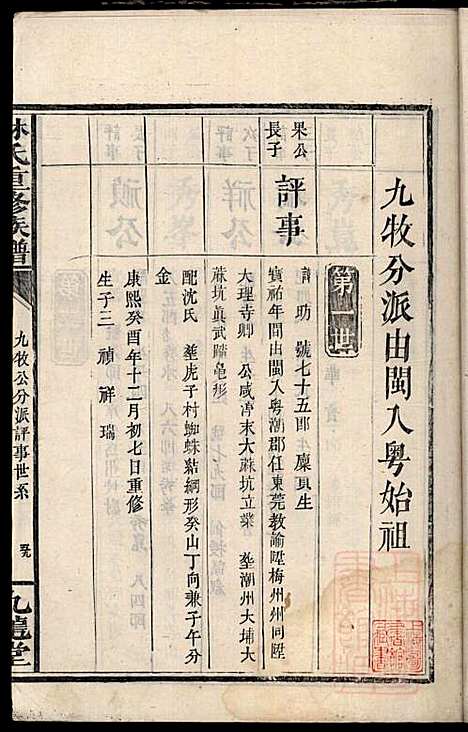 九牧分派由閩入粤始祖
第一世
果公
長子
評事
諱助 號七十五郎 廪貢生
寳祐年間由閩入粤潮郡任東莞教諭陞梅州州同陞
大理寺卿 公咸淳末大蔴坑立業 塟潮州大埔大
蔴坑眞武踏亀形
配沈氏 塟虎子村蜘蛛結綱形癸山丁向兼子午分
金
康熙癸酉年十二月初七日重修
生子三 禎 祥 瑞
林氏重修族譜
九牧公分派評事世系
九龍堂